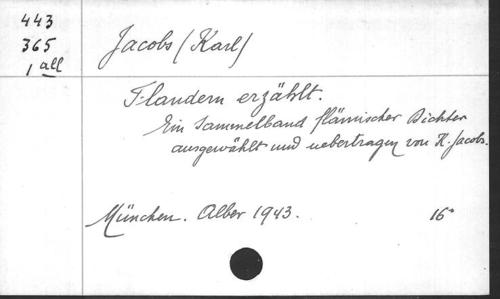 443
365
1 all
Jacobs (Karl)
Flandern erzählt.
Ein Sammelband flämischer Dichter
ausgewählt und uebertragen von K. Jacobs.
München. Alber 1943. 16°